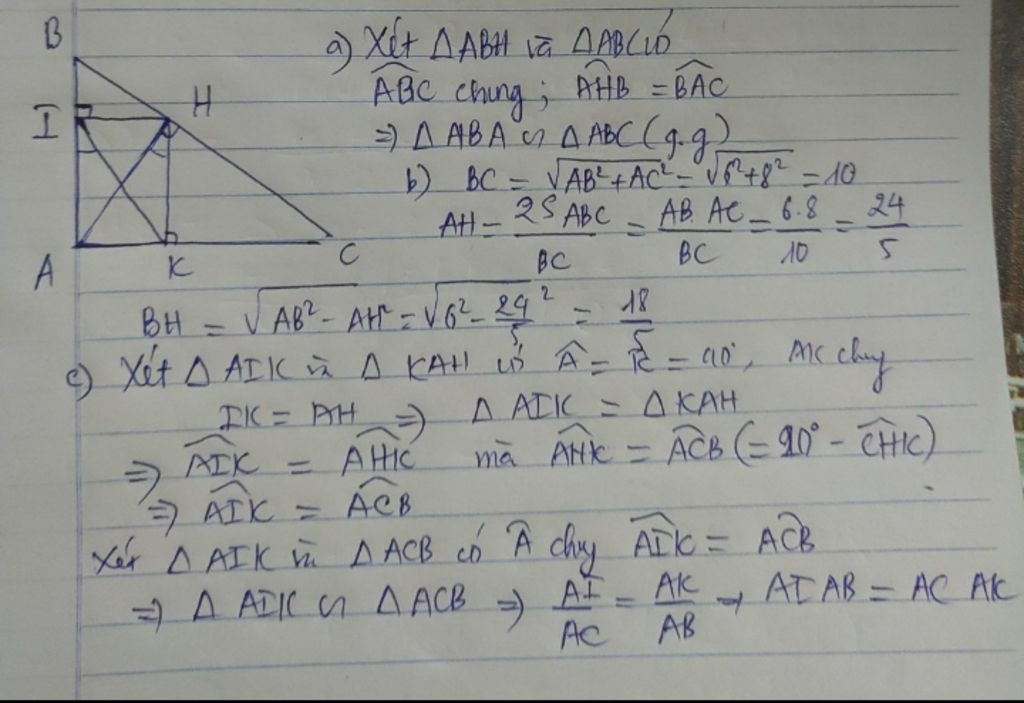 B
I
H
A
K
C
a) Xét ΔABH và ΔABC có
\widehat{ABC} chung ; \widehat{AHB} = \widehat{BAC}
=> ΔABA ∽ ΔABC (g.g)
b) BC = √(AB² + AC²) = √(6² + 8²) = 10
AH = 2S ABC / BC = AB. AC / BC = 6.8 / 10 = 24 / 5
BH = √(AB² - AH²) = √(6² - 24/5 ²) = 18 / 5
c) Xét Δ AIK và Δ KAH có \widehat{A} = \widehat{K} = 90°, AK chug
IK = AH => Δ AIK = Δ KAH
=> \widehat{AIK} = \widehat{AHK} mà \widehat{AHK} = \widehat{ACB} (= 90° - \widehat{CHK})
=> \widehat{AIK} = \widehat{ACB}
Xét Δ AIK và Δ ACB có \widehat{A} chug \widehat{AIK} = \widehat{ACB}
=> Δ AIK ∽ Δ ACB => AI / AC = AK / AB → AI AB = AC AK